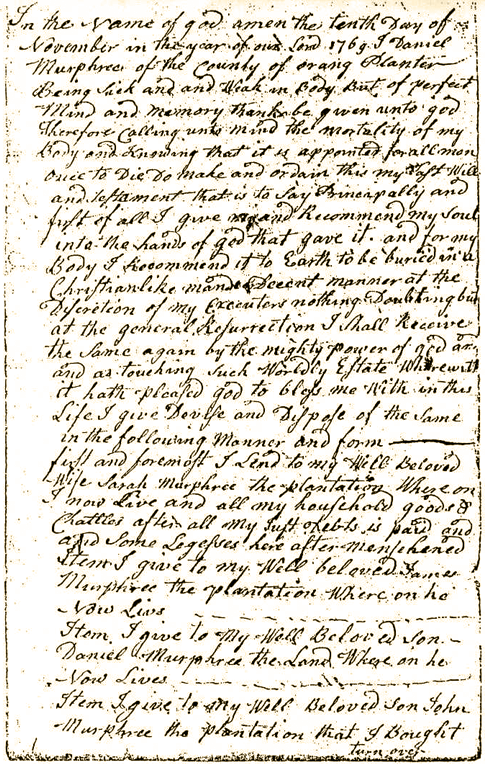 In the Name of god amen the tenth Day of
November in the year of our Lord 1769 I Daniel
Murphree of the County of orang Planter
Being Sick and and Weak in Body But of perfect
Mind and memory thanks be given unto god
therefore Calling unto mind the mortality of my
Body and Knowing that it is appointed for all men
once to Die Do make and ordain this my Last Will
and Testament that is to Say Principally and
first of all I give and Recommend my Soul
into the hands of god that gave it. and for my
Body I Recommend it to Earth to be buried in a
Christianlike and Decent manner at the
Discretion of my Executers nothing Doubting but
at the general Resurrection I Shall Receive
the Same again by the mighty power of god an
and as touching Such Worldly Estate Wherewith
it hath pleased god to bless me With in this
Life I give Devise and Dispose of the Same
in the following Manner and form
first and foremost I Lend to my Well Beloved
Wife Sarah Murphree the plantation Where on
I now Live and all my household goods &
Chattles after all my Just Debts is paid and
and Some Legesses here after Menschened
Item I give to my Well beloved James
Murphree the plantation Where on he
Now Livs
Item, I give to My Well Beloved Son
Daniel Murphree the Land Where on he
Now Lives
Item I give to my Well Beloved Son John
Murphree the plantation that I Bought
turn over